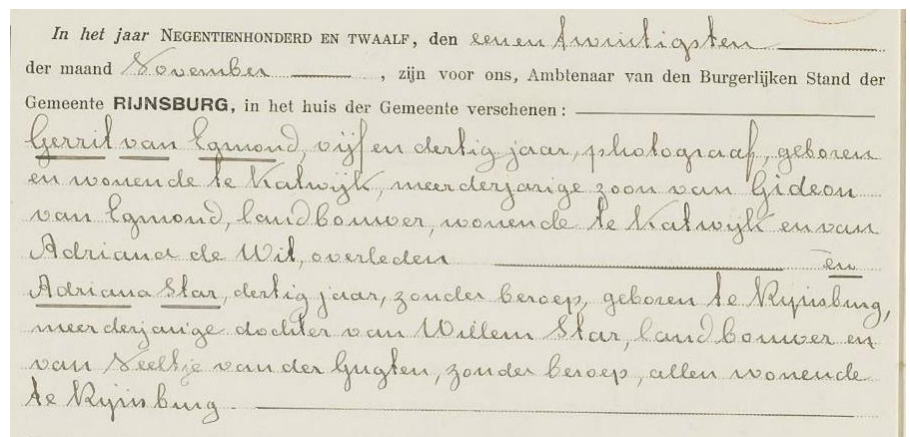 In het jaar NEGENTIENHONDERD EN TWAALF, den eenentwintigsten
der maand November, zijn voor ons, Ambtenaar van den Burgerlijken Stand der
Gemeente RIJNSBURG, in het huis der Gemeente verschenen:
Gerrit van Egmond, vijf en dertig jaar, photograaf, geboren
en wonende te Katwijk, meerderjarige zoon van Gideon
van Egmond, landbouwer, wonende te Katwijk en van
Adriana de Wit, overleden en
Adriana Star, dertig jaar, zonder beroep, geboren te Rijnsburg,
meerderjarige dochter van Willem Star, landbouwer en
van Neeltje van der Gugten, zonder beroep, allen wonende
te Rijnsburg